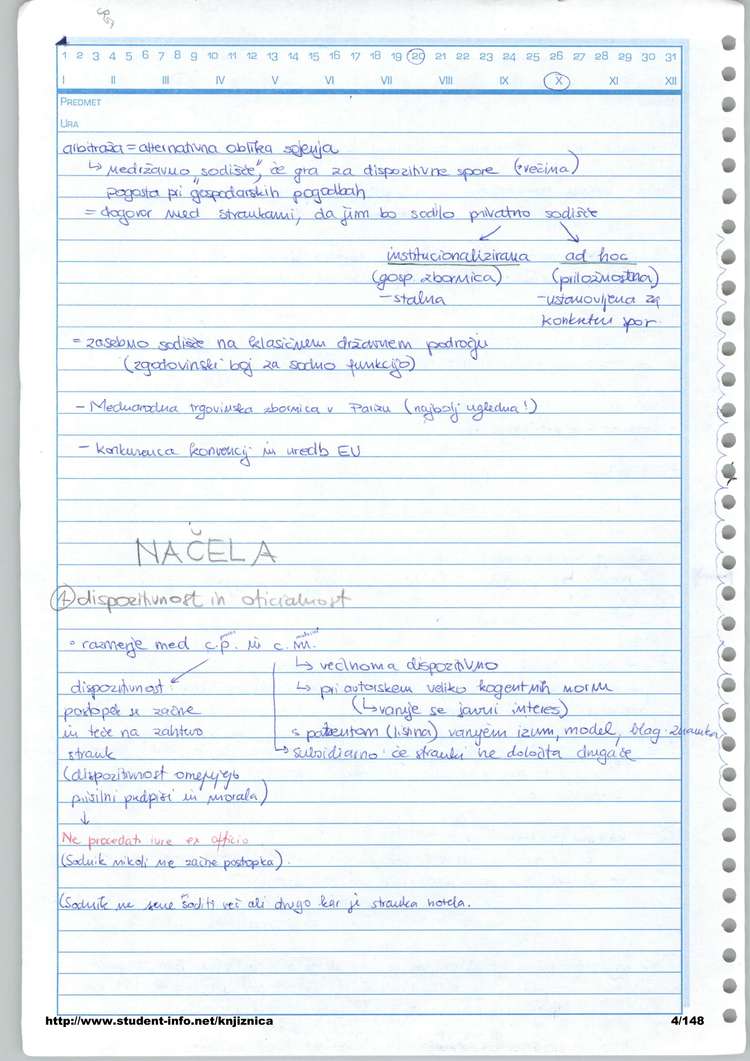 1 2 3 4 5 6 7 8 9 10 11 12 13 14 15 16 17 18 19 20 21 22 23 24 25 26 27 28 29 30 31
I II III IV V VI VII VIII IX X XI XII
PREDMET
URA
arbitraža = alternativna oblika sojenja
↳ meddržavno „sodišče“, če gra za dispozitivne spore (večina)
pogosta pri gospodarskih pogodbah
= dogovor med strankami, da jim bo sodilo privatno sodišče
institucionalizirana ad hoc
(gosp. zbornica) (priložnostna)
– stalna – ustanovljena za
konkreten spor
= zasebno sodišče na klasičnem državnem področju
(zgodovinski boj za sodno funkcijo)
– Mednarodna trgovinska zbornica v Parizu (najbolj ugledna!)
– konkurenca konvencij in uredb EU
NAČELA
1 dispozitivnost in oficialnost
• razmerje med c.p. in c.m.
↳ večinoma dispozitivno
dispozitivnost: ↳ pri avtorskem veliko kogentnih norm
postopek se začne (↳ varuje se javni interes)
in teče na zahtevo s patentom (listina) varujem izum, model, blag. znamko
strank ↳ subsidiarno če stranki ne določita drugače
(dispozitivnost omejujejo
prisilni predpisi in morala)
↓
Ne procedat iure ex officio
(Sodnik nikoli ne začne postopka).
(Sodnik ne sme soditi več ali drugo kar je stranka hotela.
http://www.student-info.net/knjiznica 4/148